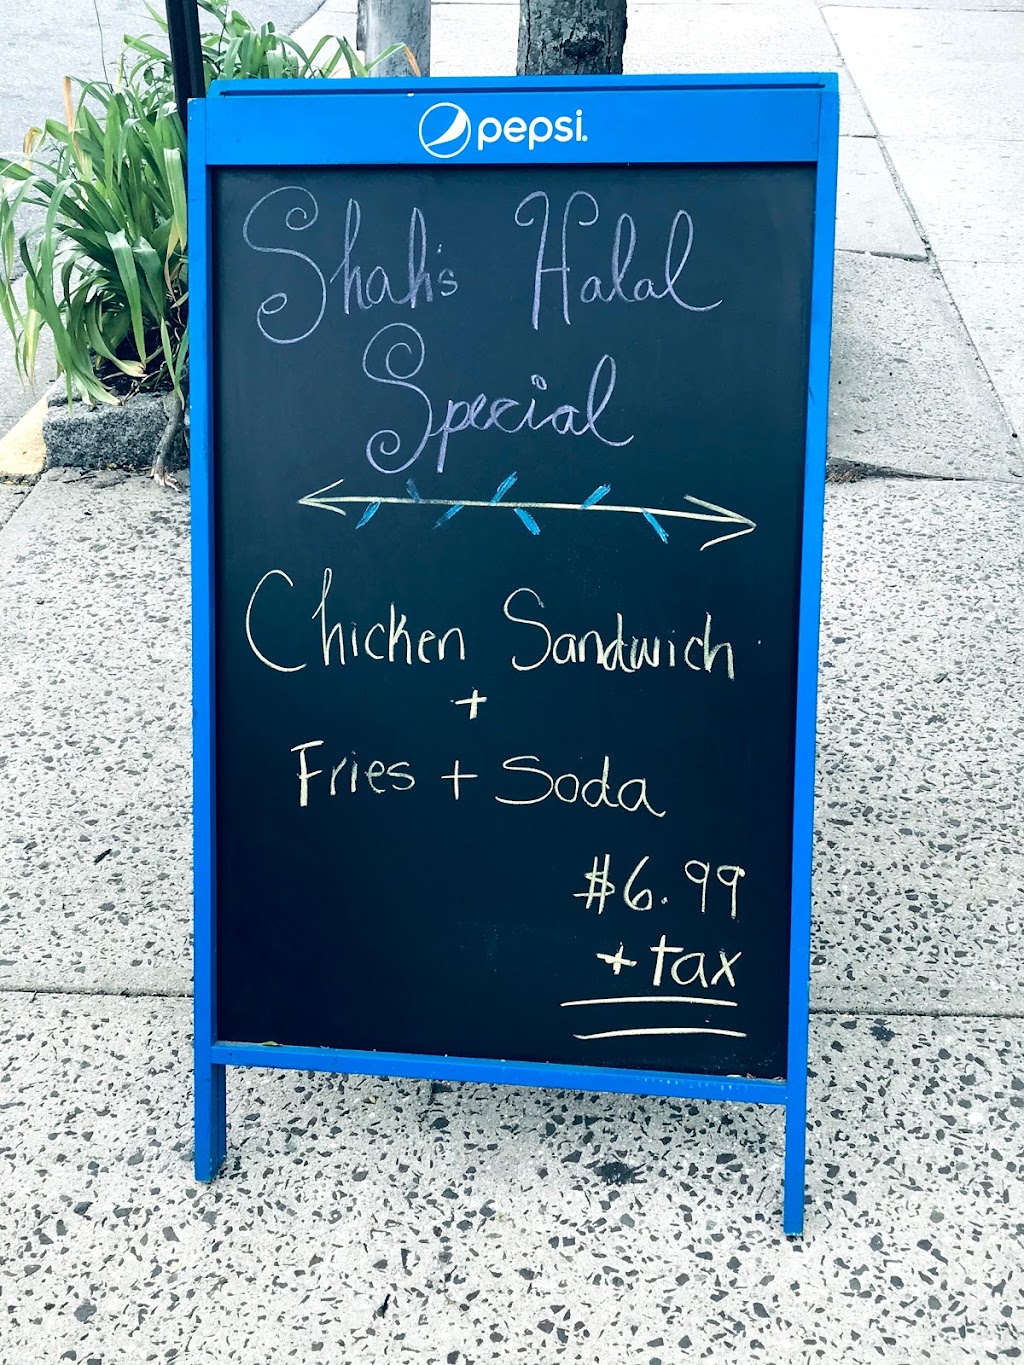 pepsi.
Shah's Halal
Special
Chicken Sandwich
+
Fries + Soda
$6.99
+ tax